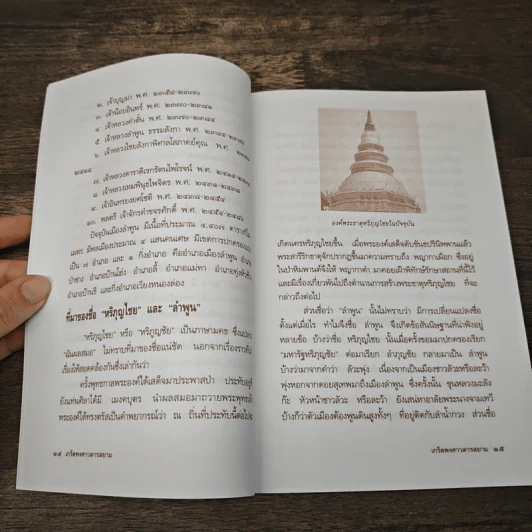 ๒. เจ้าบุญมา พ.ศ. ๒๓๕๘-๒๓๗๐
๓. เจ้าน้อยอินทร์ พ.ศ. ๒๓๗๐-๒๓๘๑
๔. เจ้าหลวงคำตัน พ.ศ. ๒๓๗๐-๒๓๘๔
๕. เจ้าหลวงลำพูน ธรรมลังกา พ.ศ. ๒๓๘๔-๒๓๘๖
๖. เจ้าหลวงไชยลังกาพิศาลโสภาคย์คุณ พ.ศ.
๒๔๑๔
๗. เจ้าหลวงดาราดิเรกรัตนไพโรจน์ พ.ศ.
๘. เจ้าหลวงเหมพินธุไพจิตร พ.ศ. ๒๔๓๑-๒๔๓๘
๙. เจ้าอินทรยงยศโชติ พ.ศ. ๒๔๓๘-๒๔๕๔
๑๐. พลตรี เจ้าจักรคำขจรศักดิ์ พ.ศ. ๒๔๕๔-๒๔๘๖
ปัจจุบันเมืองลำพูน มีเนื้อที่ประมาณ ๔,๔๐๗ ตารางกิโล
เมตร มีพลเมืองประมาณ ๔ แสนคนเศษ มีเขตการปกครองแบ่ง
เป็น ๗ อำเภอ และ ๑ กิ่งอำเภอ คืออำเภอเมืองลำพูน อำเภอ
ป่าซาง อำเภอบ้านโฮ่ง อำเภอลี้ อำเภอแม่ทา อำเภอทุ่งหัวช้าง
อำเภอบ้านธิ และกิ่งอำเภอเวียงหนองล่อง
ที่มาของชื่อ "หริภุญไชย" และ "ลำพูน"
"หริภุญไชย" หรือ "หริภุญชัย" เป็นภาษามคธ ซึ่งแปลว่า
"ฉันผลสมอ" ไม่ทราบที่มาของชื่อแน่ชัด นอกจากเรื่องราวที่
เรื่องให้สอดคล้องกันซึ่งเล่ากันว่า
ครั้งพุทธกาลพระองค์ได้เสด็จมาประพาสป่า ประทับอยู่
ยังแท่นศิลาได้มี เมงคบุตร นำผลสมอมาถวายพระพุทธเจ้า
พระองค์ได้ทรงตรัสเป็นคำพยากรณ์ว่า ณ ถิ่นที่ประทับนี้ต่อไปจะ
๑๔ เกร็ดพงศาวดารสยาม
องค์พระธาตุหริภุญไชยในปัจจุบัน
เกิดนครหริภุญไชยขึ้น เมื่อพระองค์เสด็จดับขันธปรินิพพานแล้ว
พระสารีริกธาตุจักปรากฏขึ้นมาความทราบถึง พญากาเผือก ซึ่งอยู่
ในป่าหิมพานต์จึงให้ พญากาดำ มาคอยเฝ้าพิทักษ์รักษาสถานที่นี้ไว้
และมีเรื่องเกี่ยวพันไปถึงตำนานการสร้างพระธาตุหริภุญไชย ที่จะ
กล่าวถึงต่อไป
ส่วนชื่อว่า "ลำพูน" นั้นไม่ทราบว่า มีการเปลี่ยนแปลงชื่อ
ตั้งแต่เมื่อไร ทำไมจึงชื่อ ลำพูน จึงเกิดข้อสันนิษฐานที่น่าฟังอยู่
หลายข้อ บ้างว่าชื่อ หริภุญไชย นั้นเมื่อครั้งขอมมาปกครองเรียก
"มหารัฐหริภุญชัย" ต่อมาเรียก ลำภุญชัย กลายมาเป็น ลำพูน
บ้างว่ามาจากคำว่า ลัวะพุ่ง เนื่องจากเป็นเมืองชาวลัวะหรือละว้า
พุ่งหอกจากดอยสุเทพมาถึงเมืองลำพูน ซึ่งครั้งนั้น ขุนหลวงมะลัง
ก๊ะ หัวหน้าชาวลัวะ หรือละว้า ยังเสน่หาอาลัยพระนางจามเทวี
บ้างก็ว่าตัวเมืองต้องพูนดินสูงทั้งๆ ที่อยู่ติดกับลำน้ำกวง ส่วนชื่อ
เกร็ดพงศาวดารสยาม ๑๕